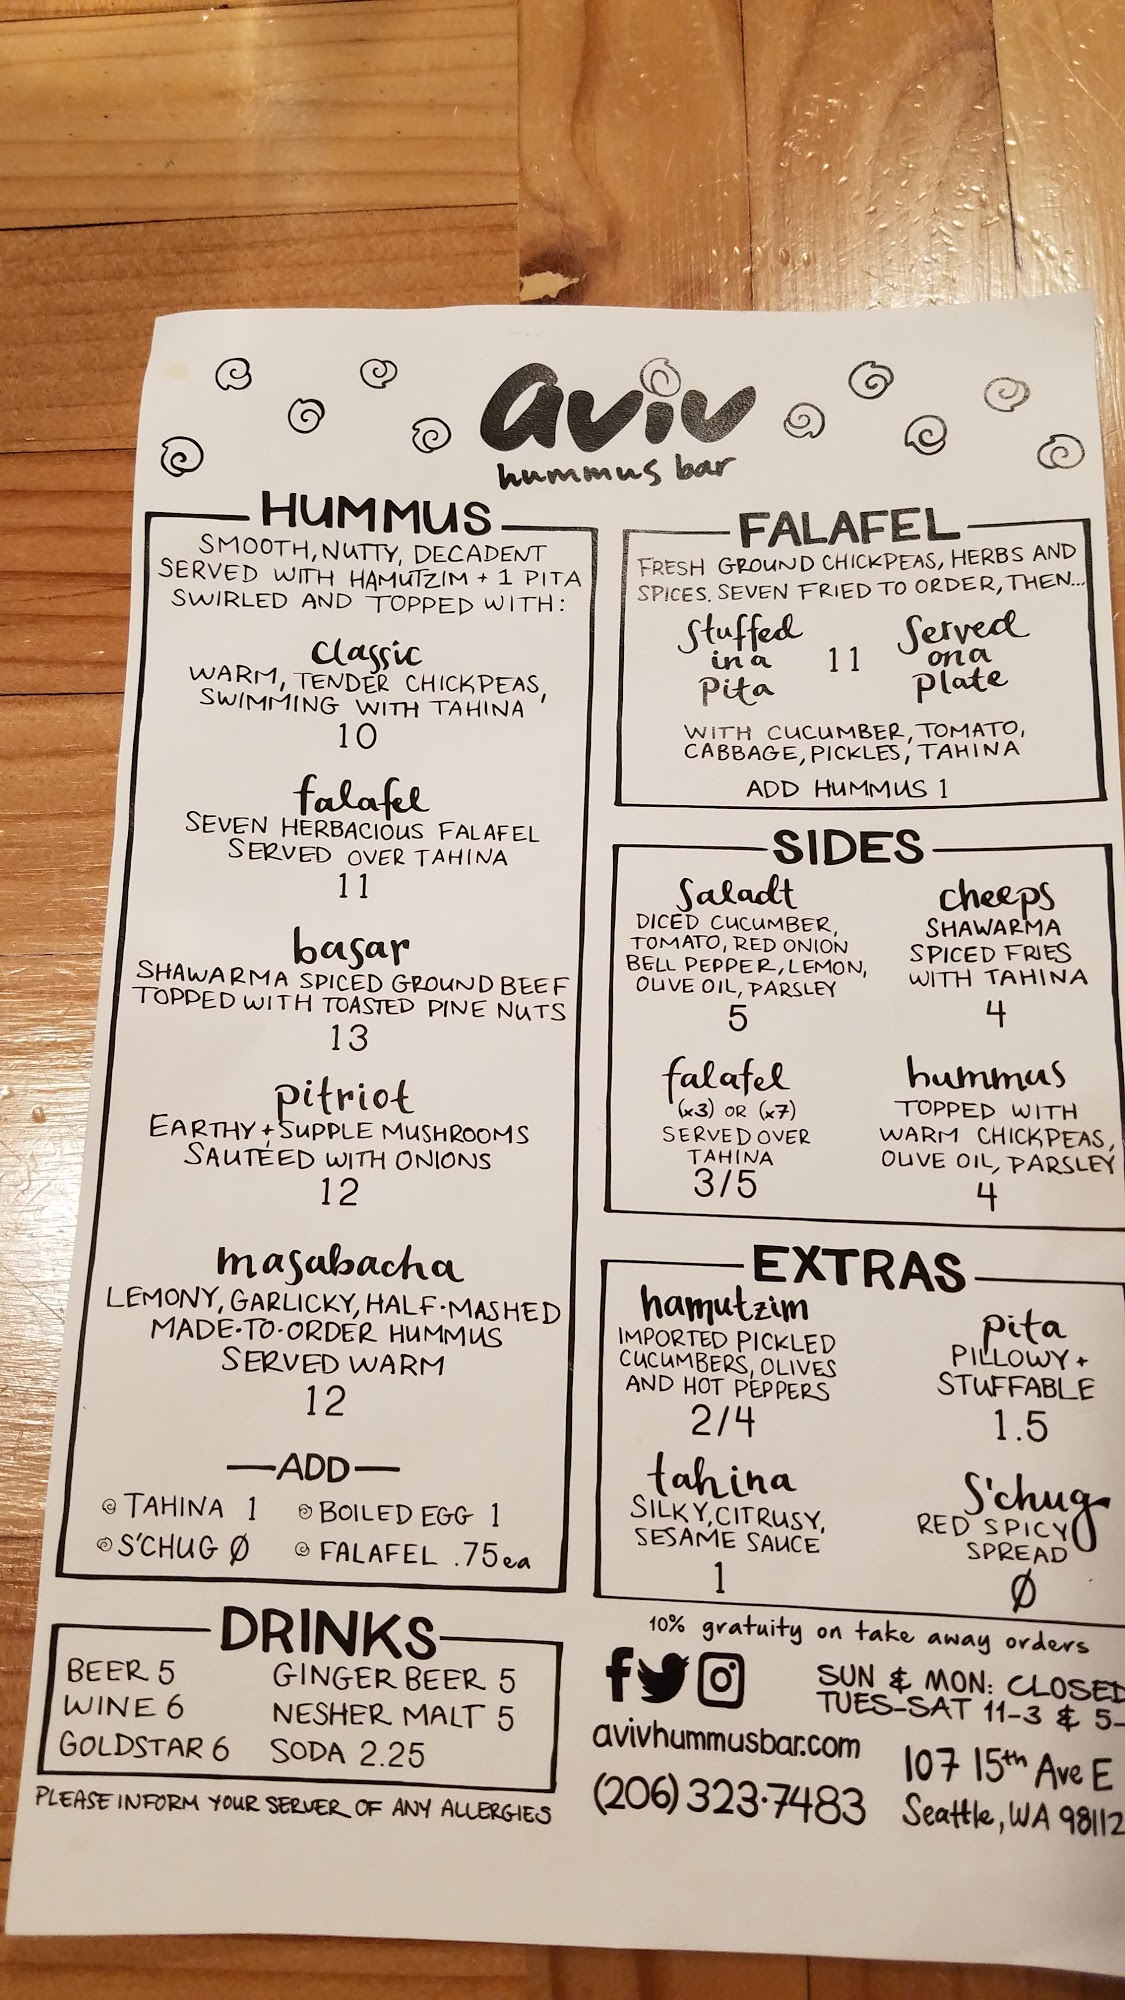 aviv
hummus bar
HUMMUS
SMOOTH, NUTTY, DECADENT
SERVED WITH HAMUTZIM + 1 PITA
SWIRLED AND TOPPED WITH:
classic
WARM, TENDER CHICKPEAS,
SWIMMING WITH TAHINA
10
falafel
SEVEN HERBACIOUS FALAFEL
SERVED OVER TAHINA
11
basar
SHAWARMA SPICED GROUND BEEF
TOPPED WITH TOASTED PINE NUTS
13
pitriot
EARTHY + SUPPLE MUSHROOMS
SAUTÉED WITH ONIONS
12
masabacha
LEMONY, GARLICKY, HALF-MASHED
MADE-TO-ORDER HUMMUS
SERVED WARM
12
ADD
TAHINA 1
BOILED EGG 1
S'CHUG Ø
FALAFEL .75ea
DRINKS
BEER 5
GINGER BEER 5
WINE 6
NESHER MALT 5
GOLDSTAR 6
SODA 2.25
PLEASE INFORM YOUR SERVER OF ANY ALLERGIES
FALAFEL
FRESH GROUND CHICKPEAS, HERBS AND
SPICES. SEVEN FRIED TO ORDER, THEN...
Stuffed
in a
Pita
11
Served
on a
Plate
WITH CUCUMBER, TOMATO,
CABBAGE, PICKLES, TAHINA
ADD HUMMUS 1
SIDES
Saladt
DICED CUCUMBER,
TOMATO, RED ONION
BELL PEPPER, LEMON,
OLIVE OIL, PARSLEY
5
cheeps
SHAWARMA
SPICED FRIES
WITH TAHINA
4
falafel
(x3) OR (x7)
SERVED OVER
TAHINA
3/5
hummus
TOPPED WITH
WARM CHICKPEAS,
OLIVE OIL, PARSLEY
4
EXTRAS
hamutzim
IMPORTED PICKLED
CUCUMBERS, OLIVES
AND HOT PEPPERS
2/4
pita
PILLOWY +
STUFFABLE
1.5
tahina
SILKY, CITRUSY,
SESAME SAUCE
1
S'chug
RED SPICY
SPREAD
Ø
10% gratuity on take away orders
SUN & MON: CLOSED
TUES-SAT 11-3 & 5-
avivhummusbar.com
(206) 323-7483
107 15th Ave E
Seattle, WA 98112